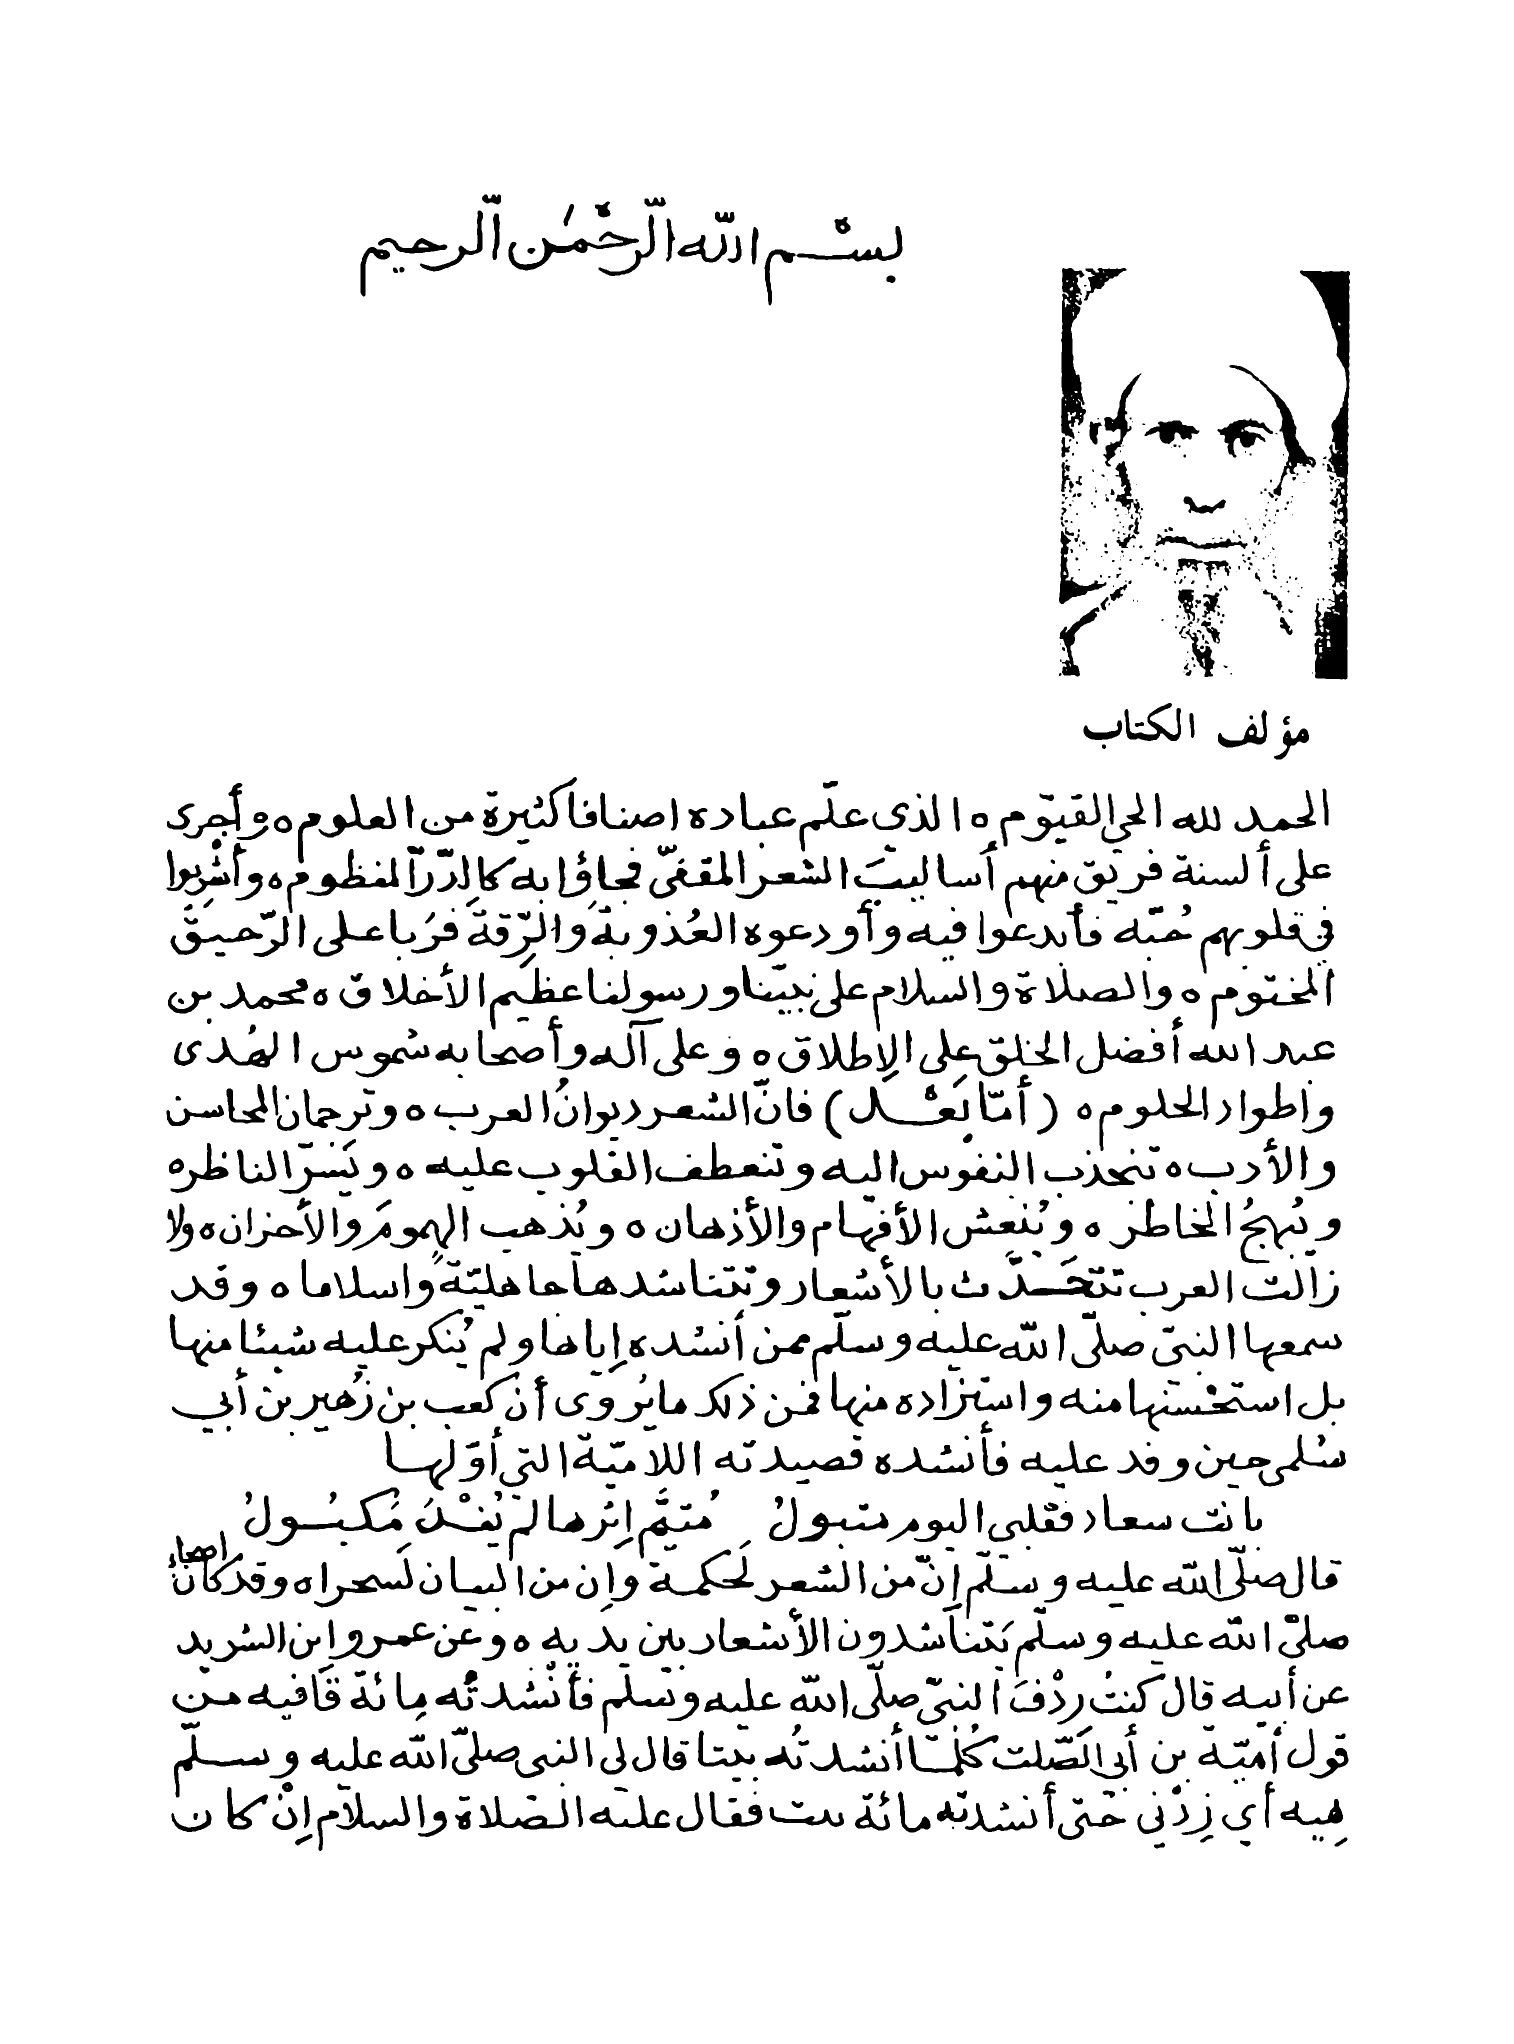 بسْم الله الّرحْمَن الّرحيم
مؤلف الكتاب
الحمد لله الحي القيّوم ٥ الذي علّم عباده اصنافا كثيرة من العلوم ٥ وأجرى
على ألسنة فريق منهم أساليبَ الشعر المقفىّ فجاؤا به كالدّررَ المنظوم ٥ وأشْرِبوا
في قلوبهم حُبّه فأبدعوا فيه وأودعوه العُذوبة والرِّقة فرَبا على الرّحيق
المختوم ٥ والصلاة والسلام على نبيّنا ورسولنا عظيم الأخلاق ٥ محمد بن
عبد الله أفضل الخلق على الإطلاق ٥ وعلى آله وأصحابه شموس الهُدى
وأطواد الحلوم ٥ (أمّا بَعْــد) فانّ الشعر ديوانُ العرب ٥ وترجمان المحاسن
والأدب ٥ تنجذب النفوس اليه وتنعطف القلوب عليه ٥ ويَسرّ الناظره
ويُبهجُ الخاطر ٥ ويُنعش الأفهام والأذهان ٥ ويُذهب الهمومَ والأحزان ٥ ولا
زالت العرب تتحَــدّث بالأشعار وتتناشدها جاهليّةً واسلاما ٥ وقد
سمعها النبيّ صلّى الله عليه وسلّم ممن أنشده إياها ولم يُنكر عليه شيئا منها
بل استحْسنها منه واستزاده منها فمن ذلك ما يُروى أن كعب بن زُهير بن أبي
سُلمى حين وفد عليه فأنشده قصيدته اللاميّة التي أوّلها
بانت سعاد فقلبي اليوم متبولُ مُتيَّم إثرها لم يُفْدَ مَكبُــولُ
قال صلّى الله عليه وسلّم إنّ من الشعر لَحكمة وإن من البيان لَسحرا ٥ وقد كان اصحابُ
صلّى الله عليه وسلّم يَتناشدون الأشعار بين يديه ٥ وعن عمرو ابن الشريد
عن أبيه قال كنتُ ردْفَ النبيّ صلّى الله عليه وسلّم فأنْشدتُه مائة قافيه من
قول أميّة بن أبي الصّلت كُلّمــا أنشدتُه بيتا قال لي النبي صلىّ الله عليه وســلّم
هِيه أي زِدْني حتى أنشدته مائة بيت فقال عليه الصّلاة والسلام إنْ كان